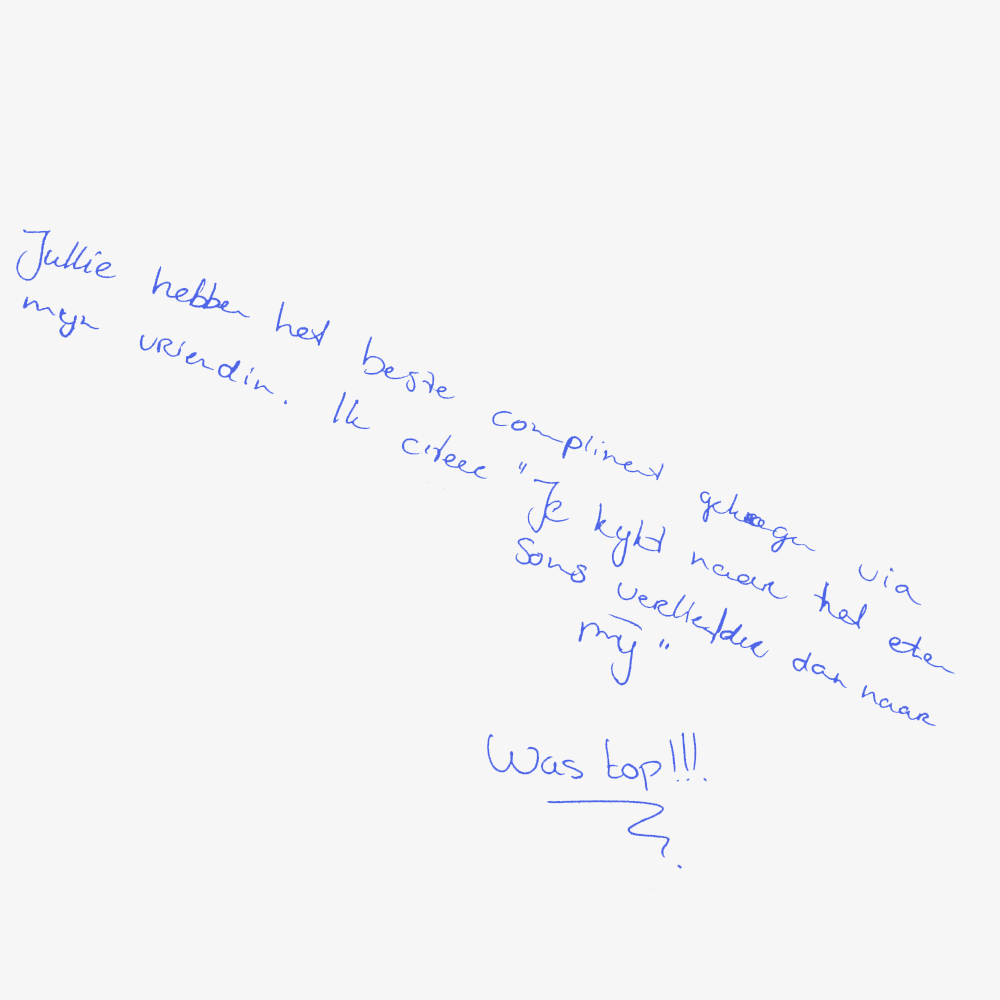 Jullie hebben het beste compliment gekregen via
mijn vriendin. Ik citeer "Je kijkt naar het eten
soms verliefder dan naar
mij"
Was top!!!